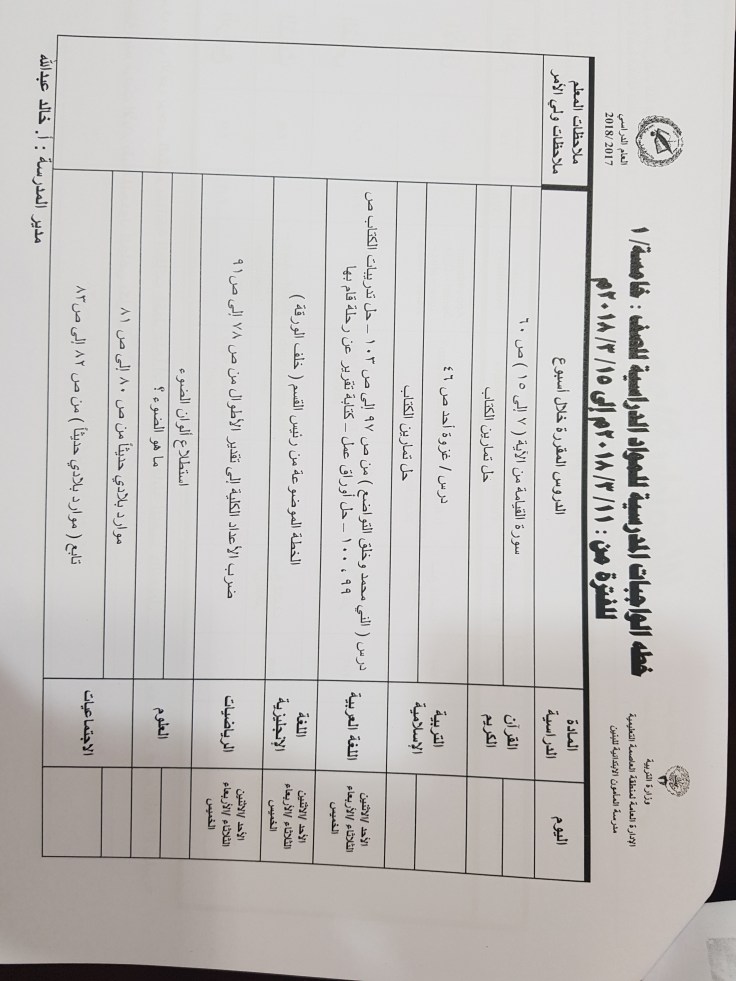 وزارة التربية
الإدارة العامة لمنطقة العاصمة التعليمية
مدرسة المأمون الابتدائية للبنين
العام الدراسي
2018/2017
خطه الواجبات المدرسية للمواد الدراسية للصف : خامسة/ ١
للفترة من : ٢٠١٨/٣/١١م إلى ٢٠١٨/٣/١٥م
اليوم
المادة الدراسية
الدروس المقررة خلال أسبوع
ملاحظات المعلم
ملاحظات ولي الأمر
القرآن الكريم
سورة القيامة من الآية ( ٧ إلى ١٥ ) ص ٦٠
حل تمارين الكتاب
التربية الإسلامية
درس / غزوة أحد ص ٤٦
حل تمارين الكتاب
الأحد /الاثنين
الثلاثاء /الأربعاء
الخميس
اللغة العربية
درس ( النبي محمد وخلق التواضع ) من ص ٩٧ إلى ص ١٠٣ – حل تدريبات الكتاب ص
٩٩ ، ١٠٠ – حل أوراق عمل – كتابة تقرير عن رحلة قام بها
الأحد /الاثنين
الثلاثاء /الأربعاء
الخميس
اللغة الإنجليزية
الخطة الموضوعة من رئيس القسم ( خلف الورقة )
الأحد /الاثنين
الثلاثاء /الأربعاء
الخميس
الرياضيات
ضرب الأعداد الكلية إلى تقدير الأطوال من ص ٧٨ إلى ص ٩١
العلوم
استطلاع ألوان الضوء
ما هو الضوء ؟
الاجتماعيات
موارد بلادي حديثاً من ص ٨٠ إلى ص ٨١
تابع ( موارد بلادي حديثاً ) من ص ٨٢ إلى ص ٨٣
مدير المدرسة : أ. خالد عبدالله